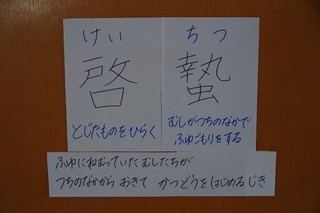 けい ちつ
啓 蟄
とじたものをひらく
むしがつちのなかで
ふゆごもりをする
ふゆにねむっていたむしたちが
つちのなかから おきて かつどうをはじめる じき